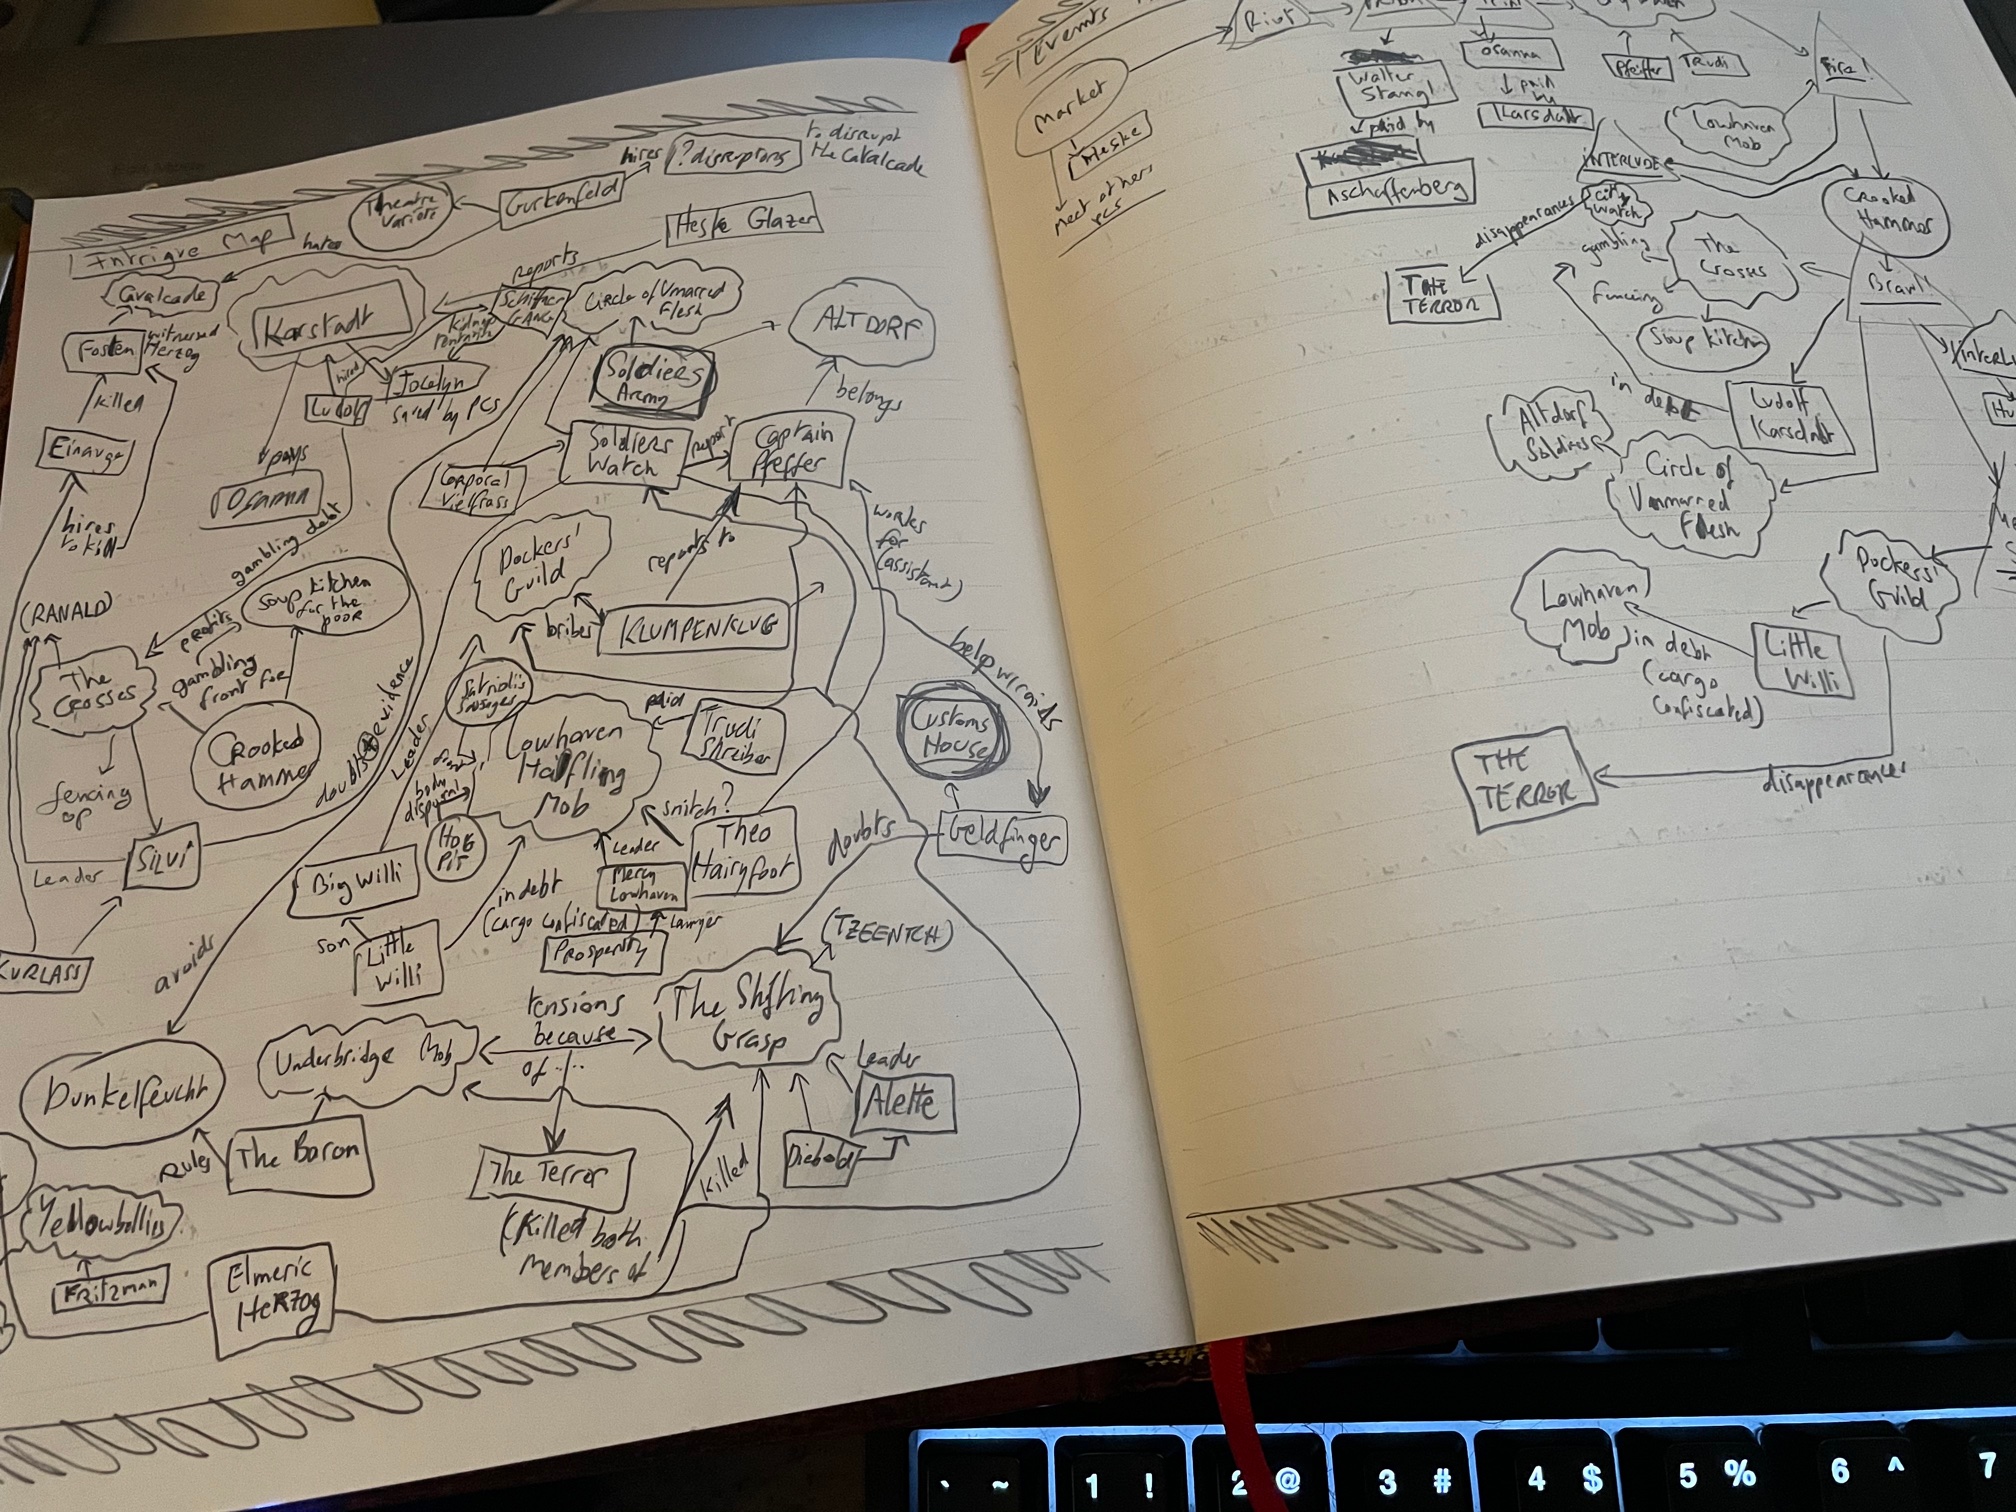 Intrigue Map
Theatre
Variore
Gurkenfeld
hires
? disruptions
to disrupt
the Cavalcade
hates
Heske Glazer
reports
Cavalcade
Karstadt
Circle of Unmarred
Flesh
ALTDORF
Fosten
witnessed
Herzog
killed
hired
Ludolf
Jocelyn
saved by PCs
Soldiers
Army
belongs
Einauge
pays
Osanna
Corporal
Vielfrass
Soldiers
Watch
report
Captain
Pfeffer
hires
to kill
gambling debt
Dockers'
Guild
reports to
works
for
(assistant)
(RANALD)
Soup Kitchen
for the
poor
profits
gambling
front for
bribes
KLUMPENKLUG
help w raids
The
Crosses
Crooked
Hammer
fencing
op
doubts
evidence
Leader
Sausages
body
disposal
Hog
Pit
Lowhaven
Halfling
Mob
paid
Trudi
Shreiber
Customs
House
snitch?
Theo
Hairyfoot
Geldfinger
doubts
Silvi
Leader
KURLASS
Big Willi
son
Little
Willi
in debt
(cargo confiscated)
Leader
Mercy
Lowhaven
Lawyer
Prosperity
(TZEENTCH)
avoids
tensions
because
of...
The Shifting
Grasp
Underbridge Mob
Dunkelfeucht
Leader
Alette
Rules
The Baron
The Terror
(killed both
members of
killed
Diebold
Yellowbellies
Fritzman
Elmeric
Herzog
Events
Riot
Market
Heske
meet others
PCs
Walter
Stangl
paid by
Aschaffenberg
Osanna
paid
by
Karsdatt
Pfeiffer
Trudi
Fire!
Lowhaven
Mob
INTERLUDE
City
Watch
disappearances
THE
TERROR
gambling
The
Crosses
fencing
Soup Kitchen
Crooked
Hammer
Brawl!
in debt
Ludolf
Karsdatt
Altdorf
Soldiers
Circle of
Unmarred
Flesh
Dockers'
Guild
Lowhaven
Mob
in debt
(cargo
confiscated)
Little
Willi
THE
TERROR
disappearances
` ~
1 !
2 @
3 #
4 $
5 %
6 ^
7